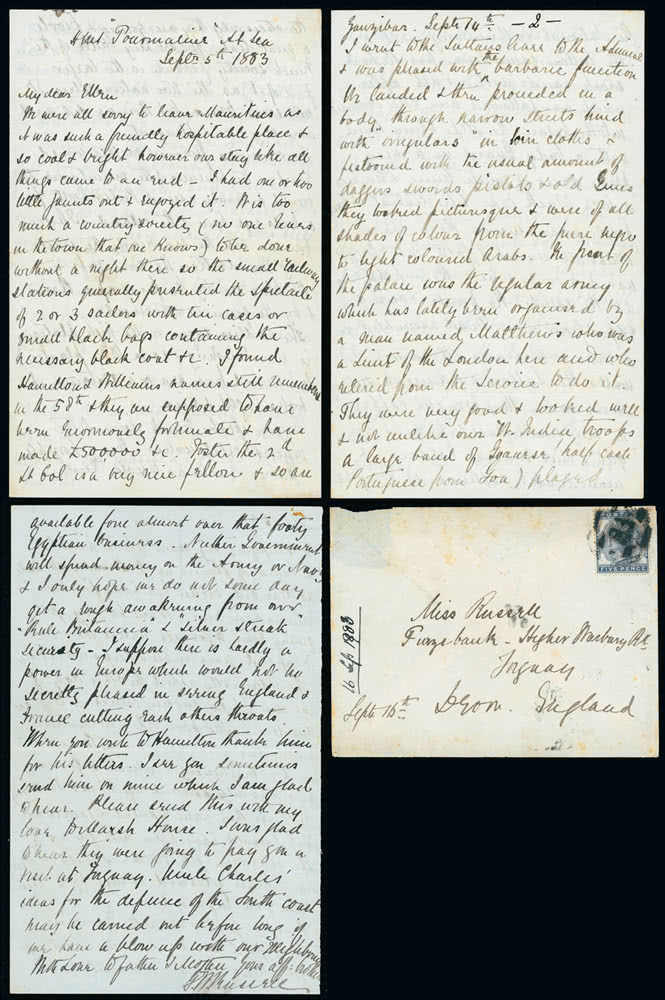 HMS "Tourmaline" At Sea
Septr 5th 1883
My dear Ellen
We were all sorry to leave Mauritius as
it was such a friendly hospitable place &
so cool & bright however our stay like all
things came to an end - I had one or two
little jaunts out & enjoyed it. It is too
much a country society (no one lives
in the town that one knows) to be done
without a night there so the small railway
stations generally presented the spectacle
of 2 or 3 sailors with tin cases or
small black bags containing the
necessary black coat &c. I found
Hamilton & Williams names still remembered
in the 58th & they are supposed to have
been enormously fortunate & have
made £500000 &c. Foster the 2d
Lt Col is a very nice fellow & so are
Zanzibar. Septr 14th - 2 -
I went to the Sultans leave to the Admiral
& was phased with the barbaric function
We landed & then proceeded in a
body through narrow streets lined
with "irregulars" in loin cloths &
festooned with the usual amount of
daggers swords pistols & old guns
they looked picturesque & were of all
shades of colour from the pure negro
to light coloured Arabs. In front of
the palace was the regular army
which has lately been organised by
a man named Matthews who was
a Lieut of the London here and who
retired from the Service to do it.
They were very good & looked well
& not unlike our W. India troops
a large band of Goanese half caste
Portuguese from Goa) played
available fone almost over that footy
Egyptian business. Neither Government
will spend money on the Army or Navy
& I only hope we do not some day
get a rough awakening from our
"Rule Britannia" & "silver streak"
security - I suppose there is hardly a
power in Europe which would not be
secretly phased in seeing England &
France cutting each others throats.
When you write to Hamilton thank him
for his letters. I see you sometimes
send him on mine which I am glad
to hear. Please send this with my
love to Marsh House. I was glad
to hear they were going to pay you a
visit at Torquay. Uncle Charles'
ideas for the defence of the South coast
may be carried out before long if
we have a blow up with our neighbours
With Love to father & Mother your aff: brother
Russell
POST
FIVE PENCE
Miss Russell
Furzebank - Higher Warbury Rd
Torquay
Septr 16th Devon. England
16 Sep 1883